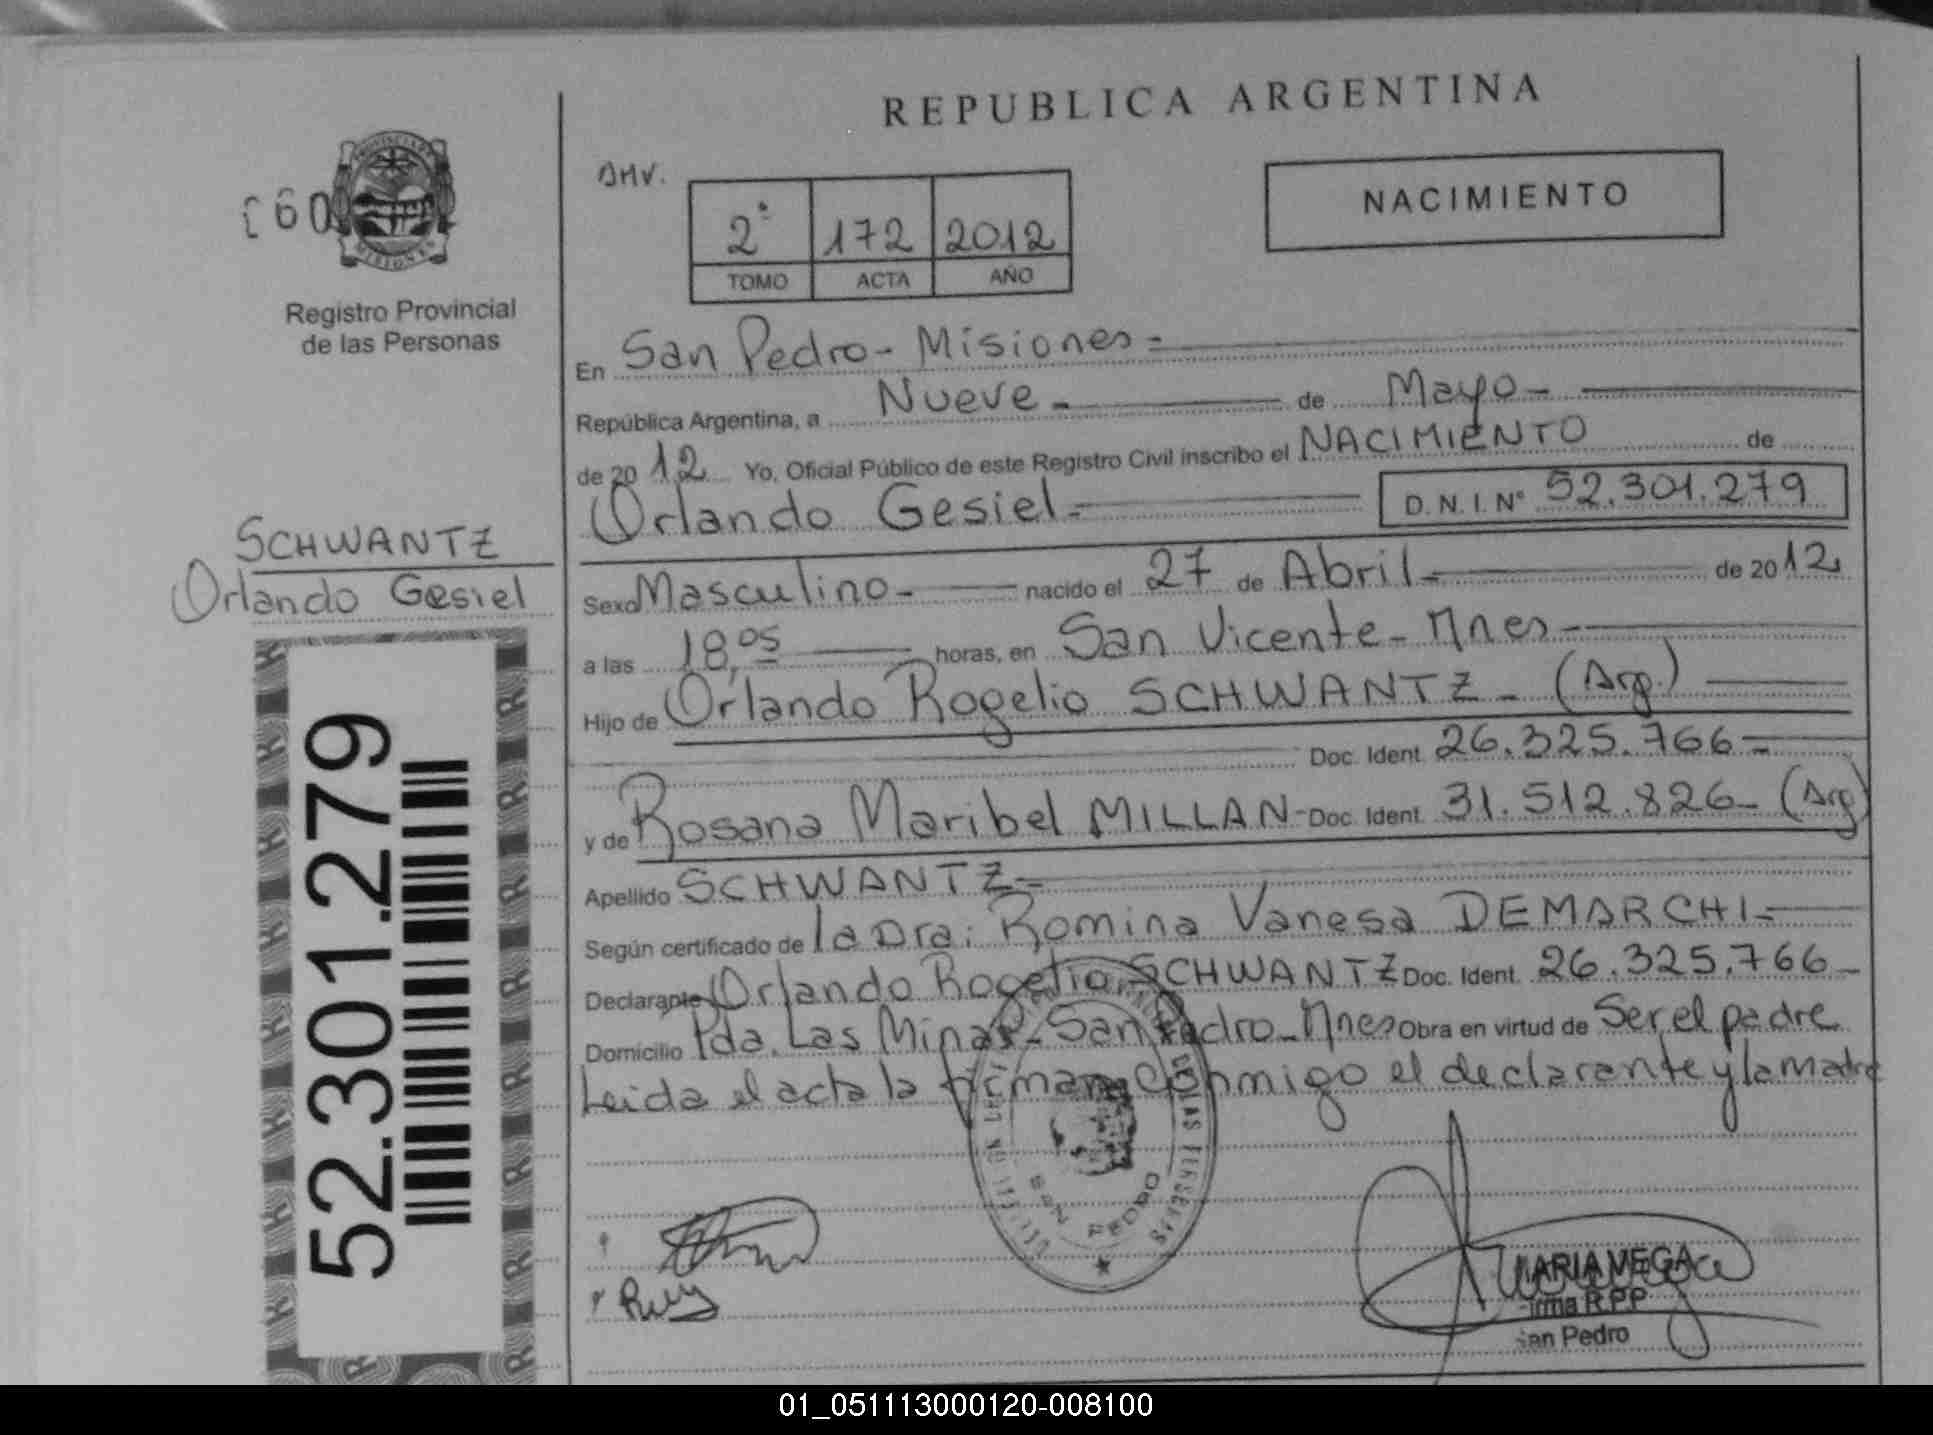 REPUBLICA ARGENTINA
DMV.
NACIMIENTO
2° 172 2012
TOMO ACTA AÑO
60
PROVINCIA DE
MISIONES
Registro Provincial
de las Personas
En San Pedro - Misiones =
República Argentina, a Nueve - de Mayo -
de 20 12 Yo, Oficial Público de este Registro Civil inscribo el NACIMIENTO de
Orlando Gesiel - D.N.I. N° 52.301.279
SCHWANTZ
Orlando Gesiel
Sexo Masculino - nacido el 27 de Abril - de 2012
a las 18,05 horas, en San Vicente - Mnes -
Hijo de Orlando Rogelio SCHWANTZ - (Arg.)
Doc. Ident. 26.325.766 -
y de Rosana Maribel MILLAN - Doc. Ident. 31.512.826 - (Arg)
Apellido SCHWANTZ -
Según certificado de la Dra: Romina Vanesa DEMARCHI -
Declarante Orlando Rogelio SCHWANTZ Doc. Ident. 26.325.766 -
Domicilio Pda. Las Minas - San Pedro - Mnes Obra en virtud de Ser el padre
Leida el acta la firman conmigo el declarante y la madre
52.301.279
DE LAS PERSONAS
SAN PEDRO
MARIA VEGA
Firma R.P.P.
San Pedro
01_051113000120-008100